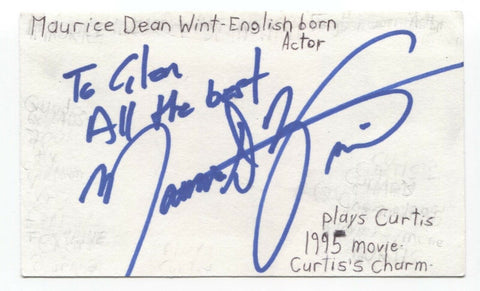 Maurice Dean Wint-English born
Actor
To Glen
All the best
Maurice D Wint
plays Curtis
1995 movie.
Curtis's Charm.